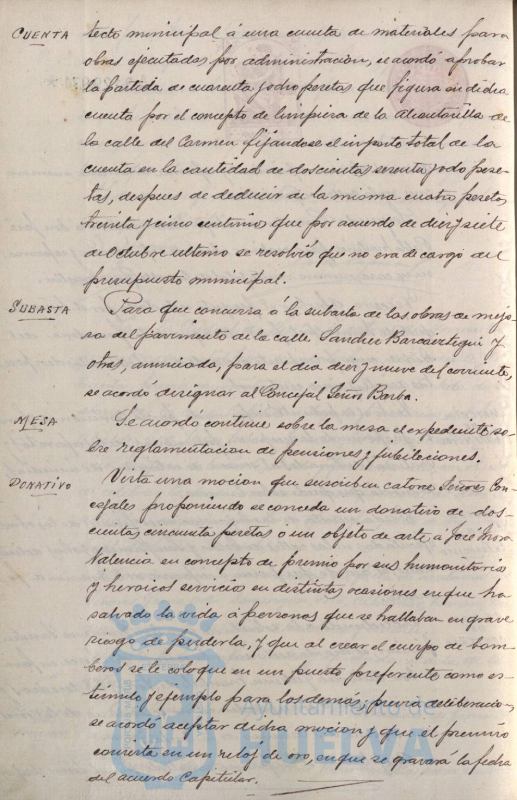 CUENTA
tecto municipal á una cuenta de materiales para
obras ejecutadas por administración, se acordó aprobar
la partida de cuarenta y ocho pesetas que figura en dicha
cuenta por el concepto de limpieza de la alcantarilla de
la calle del Carmen fijandose el importe total de la
cuenta en la cantidad de doscientas setenta y ocho pese-
tas, despues de deducir de la misma cuatro pesetas
treinta y cinco centimos que por acuerdo de diez y siete
de Octubre ultimo se resolvió que no era de cargo del
presupuesto municipal.
SUBASTA
Para que concurra á la subasta de las obras de mejo-
ra del pavimento de la calle Sanchez Barcaiztegui y
otras, anunciada, para el dia diez y nueve del corriente,
se acordó designar al Concejal Señor Barba.
MESA
Se acordó continue sobre la mesa el expediente so-
bre reglamentacion de pensiones y jubilaciones.
DONATIVO
Vista una mocion que suscriben catorce Señores Con-
cejales proponiendo se conceda un donativo de dos-
cientas cincuenta pesetas ó un objeto de arte á José Mora
Valencia en concepto de premio por sus humanitarios
y heroicos servicios en distintas ocasiones en que ha
salvado la vida á personas que se hallaban en grave
riesgo de perderla, y que al crear el cuerpo de bom-
beros se le coloque en un puesto preferente como es-
timulo y ejemplo para los demás; previa deliberacion
se acordó aceptar dicha mocion y que el premio
consista en un reloj de oro, en que se gravará la fecha
del acuerdo Capitular.
Ayuntamiento de
HUELVA